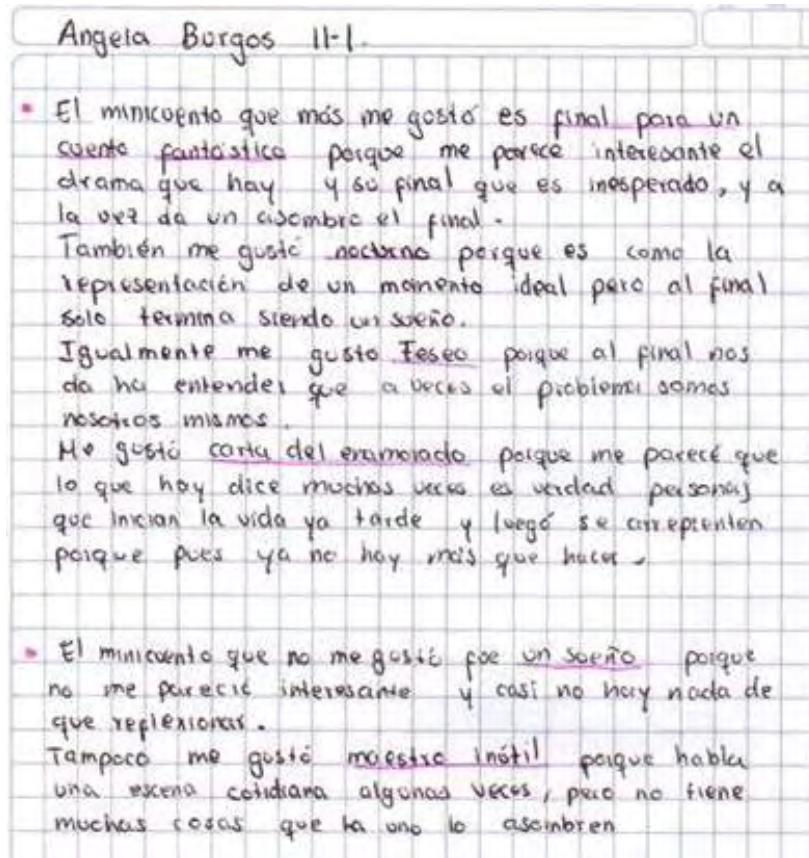 Angela Burgos 11-1.
El minicuento que más me gostó es final para un
cuento fantástico porque me parece interesante el
drama que hay y su final que es inesperado, y a
la vez da un asombro el final.
También me gustó nocturno porque es como la
representación de un momento ideal pero al final
solo termina siendo un sueño.
Igualmente me gusto Teseo porque al final nos
da ha entender que a veces el problema somos
nosotros mismos.
Me gustó carta del enamorado porque me parece que
lo que hay dice muchas veces es verdad personas
que inician la vida ya tarde y luegó se arrepienten
porque pues ya no hay más que hacer.
El minicuento que no me gustó fue un sueño porque
no me pareció interesante y casi no hay nada de
que reflexionar.
Tampoco me gustó maestro inútil porque habla
una escena cotidiana algunas veces, pero no tiene
muchas cosas que ha uno lo asombren